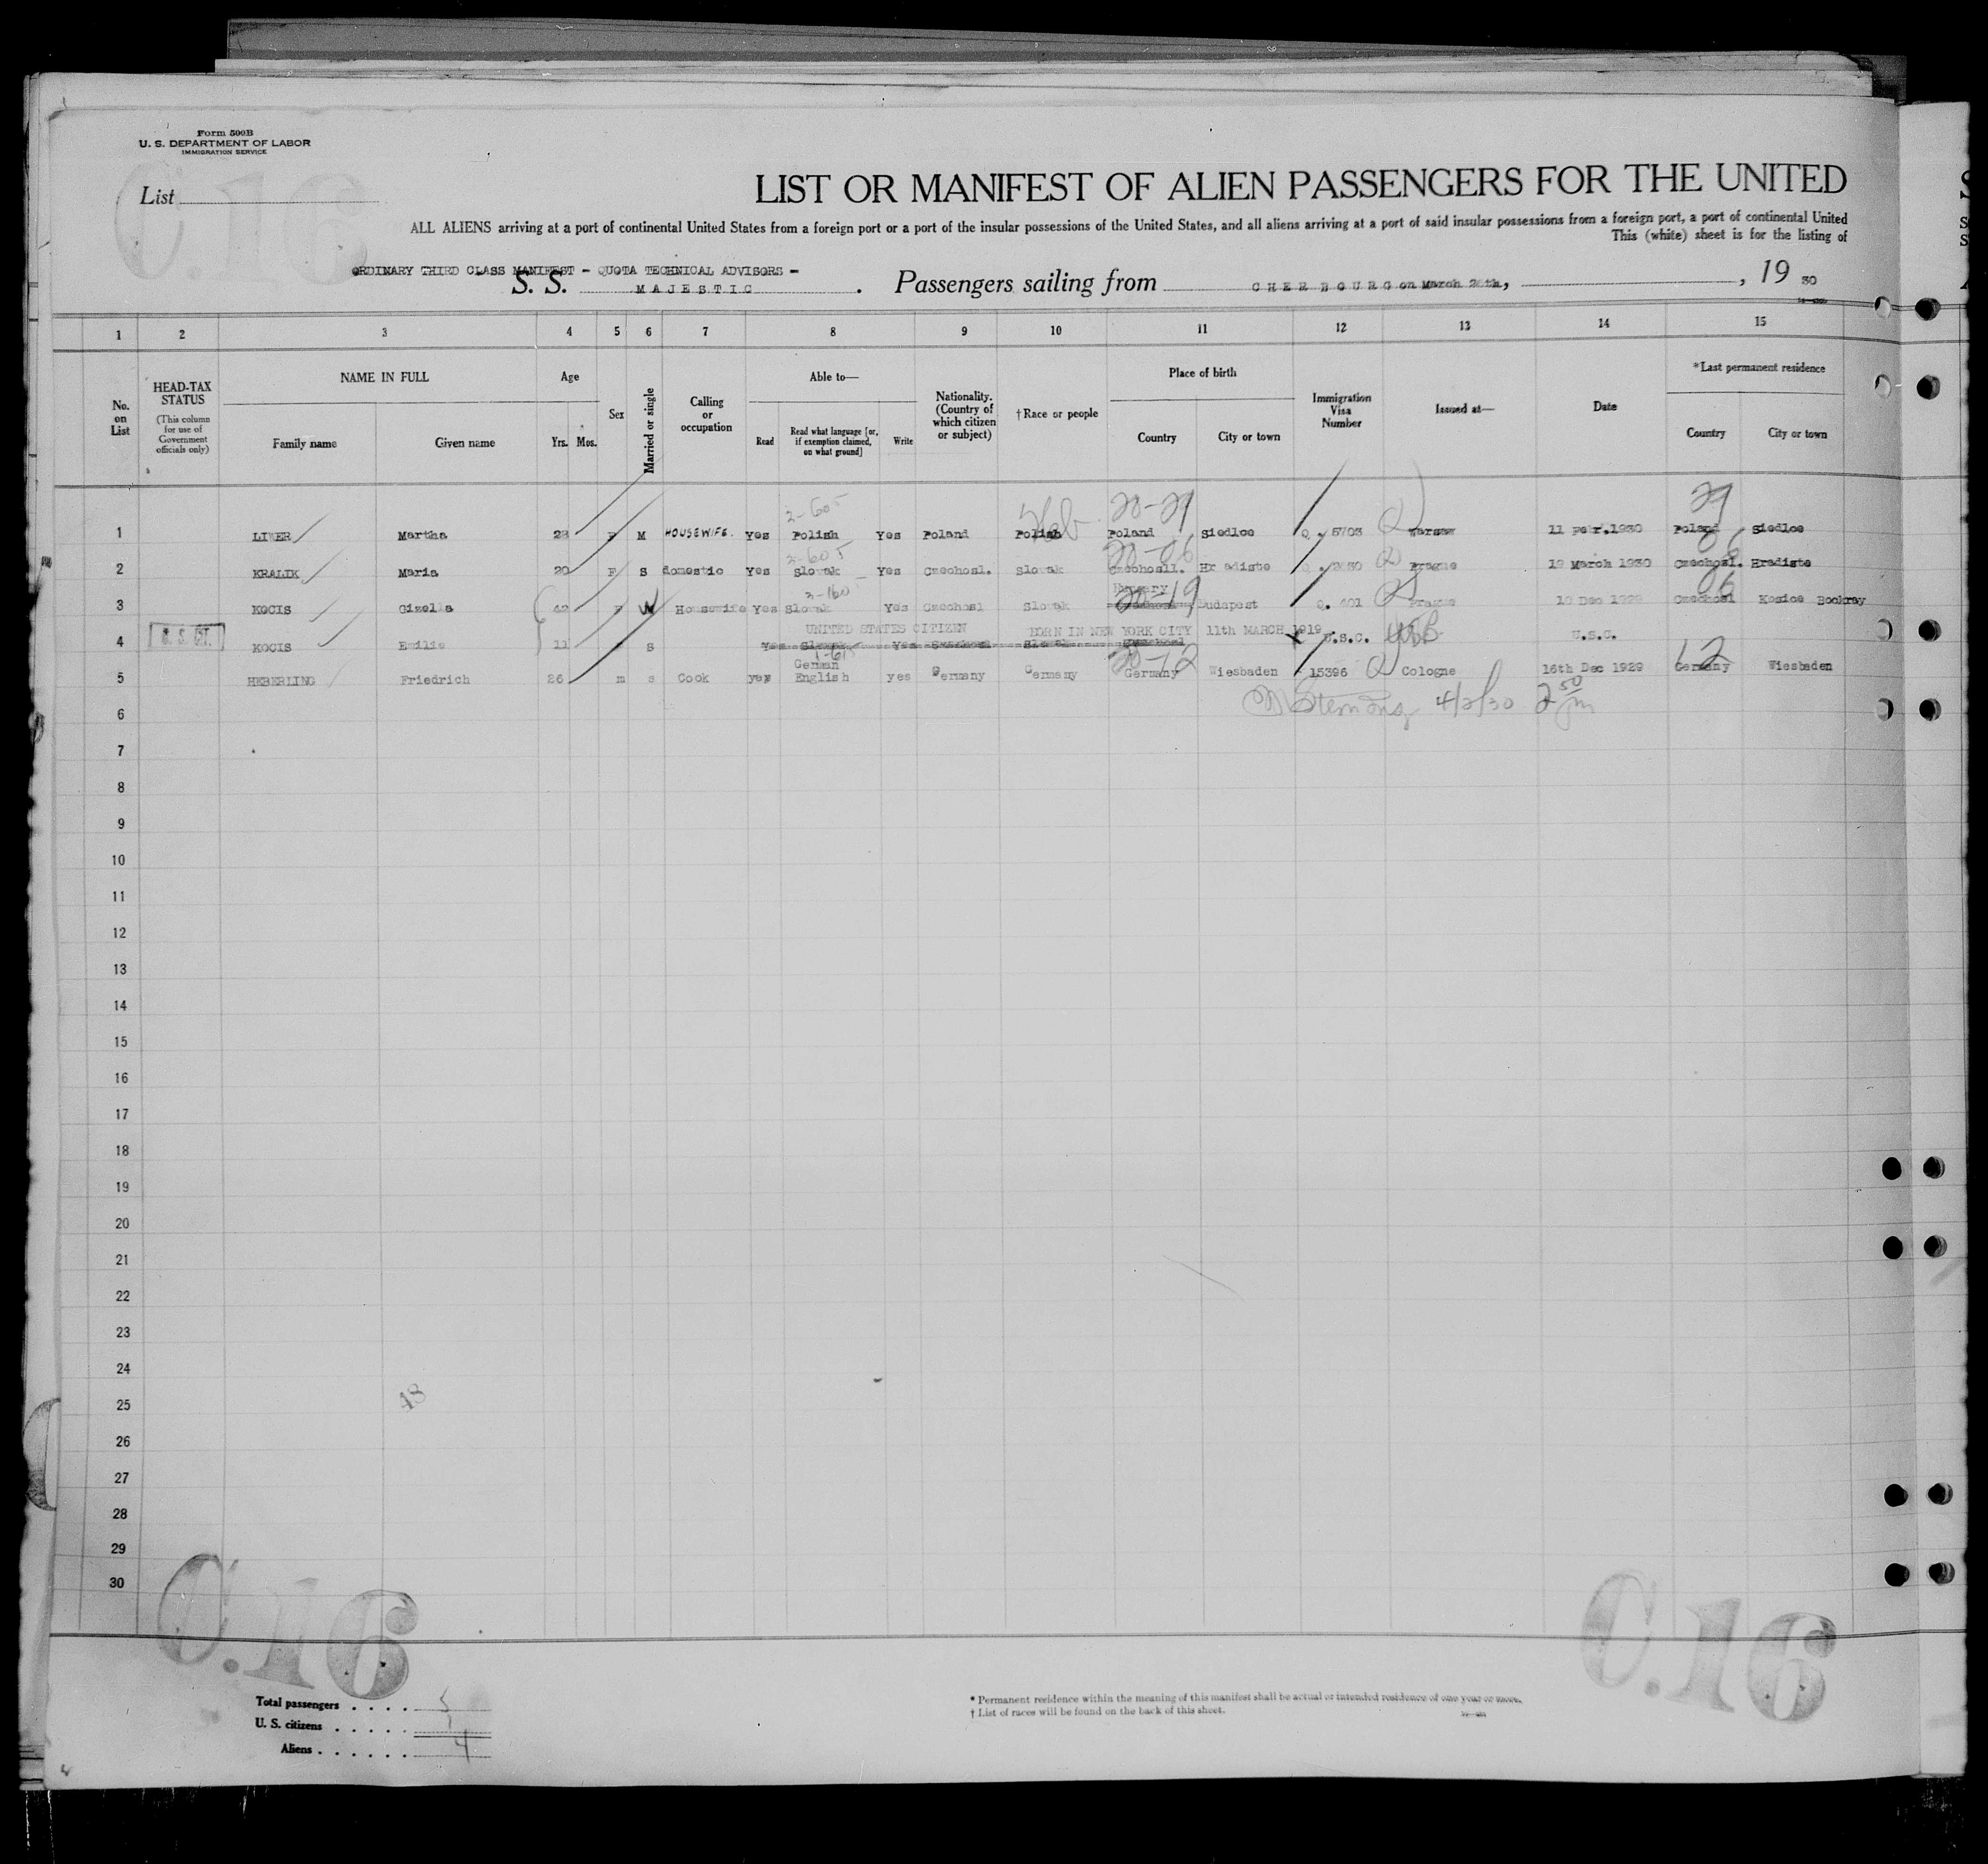 Form 500B
U. S. DEPARTMENT OF LABOR
IMMIGRATION SERVICE
C.16
List
LIST OR MANIFEST OF ALIEN PASSENGERS FOR THE UNITED
ALL ALIENS arriving at a port of continental United States from a foreign port or a port of the insular possessions of the United States, and all aliens arriving at a port of said insular possessions from a foreign port, a port of continental United
This (white) sheet is for the listing of
ORDINARY THIRD CLASS MANIFEST - QUOTA TECHNICAL ADVISORS -
S. S. MAJESTIC. Passengers sailing from CHERBOURG on March 26th, , 19 30
1 2 3 4 5 6 7 8 9 10 11 12 13 14 15
No. on List
HEAD-TAX STATUS
(This column for use of Government officials only)
NAME IN FULL
Family name Given name
Age
Yrs. Mos.
Sex
Married or single
Calling or occupation
Able to—
Read Read what language [or, if exemption claimed, on what ground] Write
Nationality. (Country of which citizen or subject)
† Race or people
Place of birth
Country City or town
Immigration Visa Number
Issued at—
Date
* Last permanent residence
Country City or town
3-605 Heb 20-29 29
1 Martha 28 F M HOUSEWIFE. Yes Polish Yes Poland Polish Poland Siedlce Q. 5703 Q Warsaw 11 Febr.1930 Poland Siedlce
3-605 20-06 06
2 KRALIK Maria 20 F S domestic Yes Slovak Yes Czechosl. Slovak Czechosl. Hradiste Q Prague 19 March 1930 Czechosl. Hradiste
3-160 Hungary 20-19 06
3 KOCIS Gizella 42 F W Housewife Yes Slovak Yes Czechosl Slovak Budapest Q. 401 Q Prague Czechosl Kosice
UNITED STATES CITIZEN BORN IN NEW YORK CITY 11th MARCH 1919
4 KOCIS Emilie 11 F S Yes Slovak Yes Czechosl Slovak Czechosl X U.S.C. USB U.S.C.
1-615 20-12 12
5 HEBERLING Friedrich 26 m s Cook yes German English yes Germany Germany Germany Wiesbaden 15396 Q Cologne 16th Dec 1929 Germany Wiesbaden
4/2/30 2 50 pm
6
7
8
9
10
11
12
13
14
15
16
17
18
19
20
21
22
23
24
25
48
26
27
28
29
30
C.16 C.16
Total passengers . . . . 5
U. S. citizens . . . . . 1
Aliens . . . . . . 4
* Permanent residence within the meaning of this manifest shall be actual or intended residence of one year or more.
† List of races will be found on the back of this sheet.